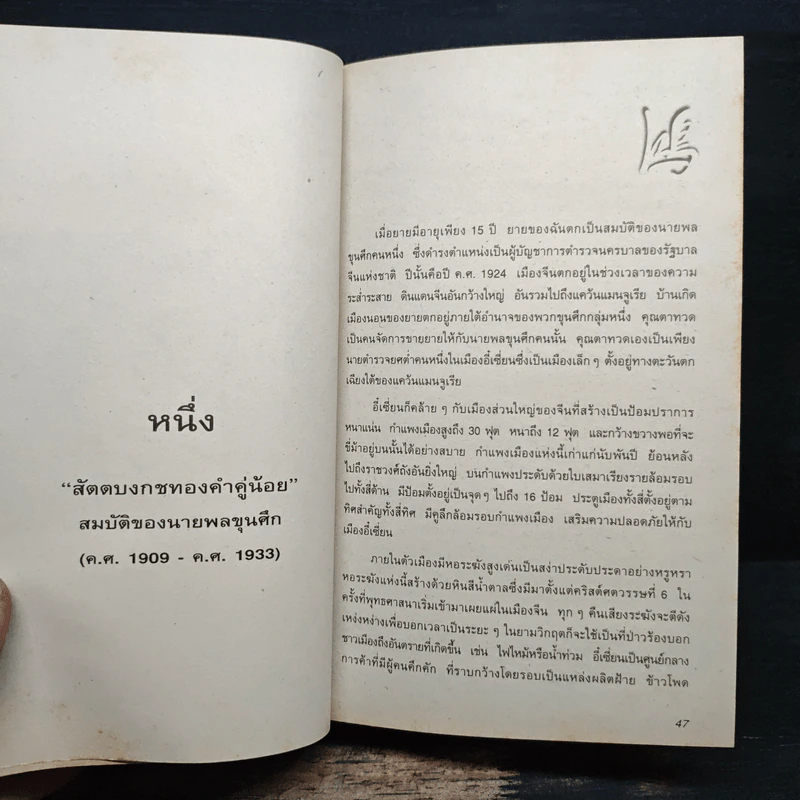 หนึ่ง
“สัตตบงกชทองคำคู่น้อย”
สมบัติของนายพลขุนศึก
(ค.ศ. 1909 - ค.ศ. 1933)
เมื่อยายมีอายุเพียง 15 ปี ยายของฉันตกเป็นสมบัติของนายพล
ขุนศึกคนหนึ่ง ซึ่งดำรงตำแหน่งเป็นผู้บัญชาการตำรวจนครบาลของรัฐบาล
จีนแห่งชาติ ปีนั้นคือปี ค.ศ. 1924 เมืองจีนตกอยู่ในช่วงเวลาของความ
ระส่ำระสาย ดินแดนจีนอันกว้างใหญ่ อันรวมไปถึงแคว้นแมนจูเรีย บ้านเกิด
เมืองนอนของยายตกอยู่ภายใต้อำนาจของพวกขุนศึกกลุ่มหนึ่ง คุณตาทวด
เป็นคนจัดการขายยายให้กับนายพลขุนศึกคนนั้น คุณตาทวดเองเป็นเพียง
นายตำรวจยศต่ำคนหนึ่งในเมืองอี๋เซี่ยนซึ่งเป็นเมืองเล็ก ๆ ตั้งอยู่ทางตะวันตก
เฉียงใต้ของแคว้นแมนจูเรีย
อี๋เซี่ยนก็คล้าย ๆ กับเมืองส่วนใหญ่ของจีนที่สร้างเป็นป้อมปราการ
หนาแน่น กำแพงเมืองสูงถึง 30 ฟุต หนาถึง 12 ฟุต และกว้างขวางพอที่จะ
ขี่ม้าอยู่บนนั้นได้อย่างสบาย กำแพงเมืองแห่งนี้เก่าแก่นับพันปี ย้อนหลัง
ไปถึงราชวงศ์ถังอันยิ่งใหญ่ บนกำแพงประดับด้วยใบเสมาเรียงรายล้อมรอบ
ไปทั้งสี่ด้าน มีป้อมตั้งอยู่เป็นจุด ๆ ไปถึง 16 ป้อม ประตูเมืองทั้งสี่ตั้งอยู่ตาม
ทิศสำคัญทั้งสี่ทิศ มีคูลึกล้อมรอบกำแพงเมือง เสริมความปลอดภัยให้กับ
เมืองอี๋เซี่ยน
ภายในตัวเมืองมีหอระฆังสูงเด่นเป็นสง่าประดับประดาอย่างหรูหรา
หอระฆังแห่งนี้สร้างด้วยหินสีน้ำตาลซึ่งมีมาตั้งแต่คริสต์ศตวรรษที่ 6 ใน
ครั้งที่พุทธศาสนาเริ่มเข้ามาเผยแผ่ในเมืองจีน ทุก ๆ คืนเสียงระฆังจะตีดัง
เหง่งหง่างเพื่อบอกเวลาเป็นระยะ ๆ ในยามวิกฤตก็จะใช้เป็นที่ป่าวร้องบอก
ชาวเมืองถึงอันตรายที่เกิดขึ้น เช่น ไฟไหม้หรือน้ำท่วม อี๋เซี่ยนเป็นศูนย์กลาง
การค้าที่มีผู้คนคึกคัก ที่ราบกว้างโดยรอบเป็นแหล่งผลิตฝ้าย ข้าวโพด
47